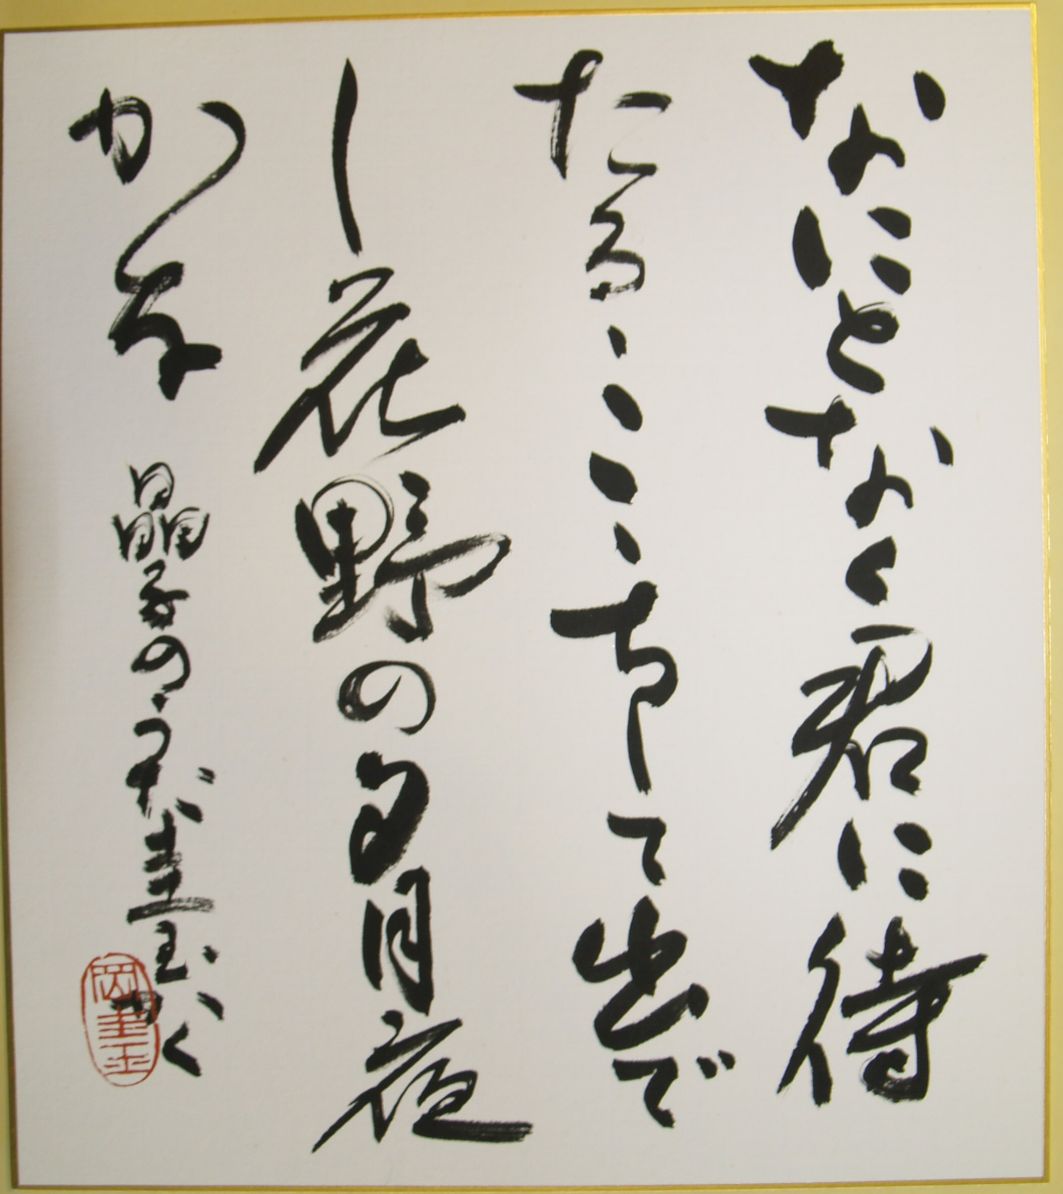 なにとなく君に待
たるゝこゝちして出で
し花野の夕月夜
かな
晶子のうた 圭玉かく
岡圭玉